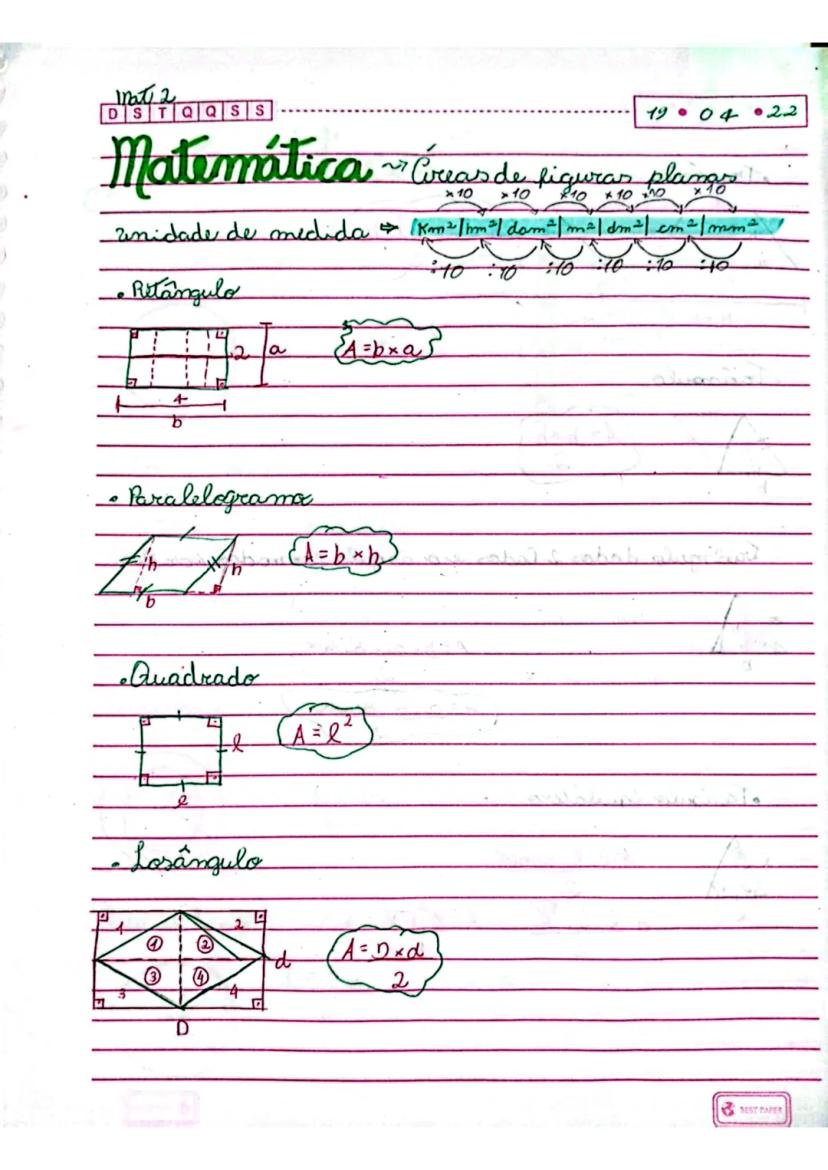 Mat 2
D S T Q Q S S
19 • 04 • 22
Matemática ~> Áreas de figuras planas
×10 ×10 ×10 ×10 ×10 ×10
unidade de medida => Km²|hm²|dam²|m²|dm²|cm²|mm²
:10 :10 :10 :10 :10 :10
• Retângulo
2 a
A = b × a
4
b
• Paralelogramo
h h
A = b × h
b
• Quadrado
l
A = l²
l
• Losângulo
1 2
① ②
d
③ ④
3 4
A = D × d
2
D
BEST PAPER